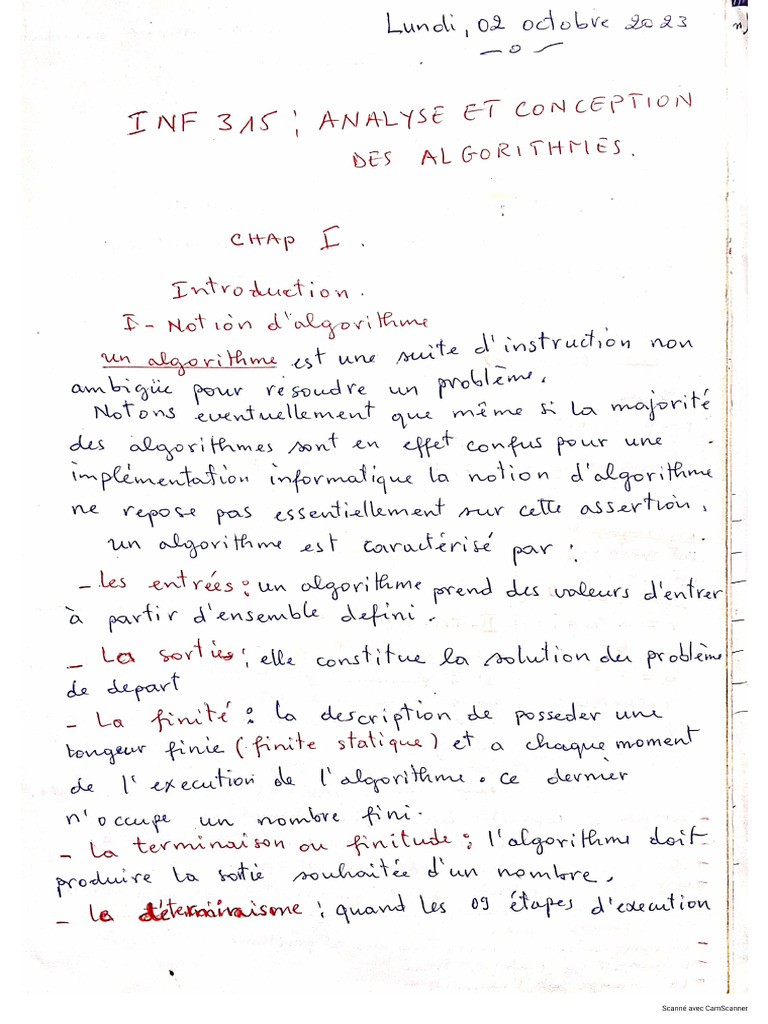 Lundi, 02 octobre 2023
INF 315 : ANALYSE ET CONCEPTION
DES ALGORITHMES.
CHAP I.
Introduction.
I - Notion d'algorithme
un algorithme est une suite d'instruction non
ambigüe pour résoudre un problème.
Notons eventuellement que même si la majorité
des algorithmes sont en effet confus pour une
implémentation informatique la notion d'algorithme
ne repose pas essentiellement sur cette assertion.
un algorithme est caractérisé par :
- les entrées : un algorithme prend des valeurs d'entrer
à partir d'ensemble defini.
- La sortie : elle constitue la solution du problème
de depart
- La finité : la description de posseder une
longeur finie (finite statique) et a chaque moment
de l'execution de l'algorithme. ce dernier
n'occupe un nombre fini.
- La terminaison ou finitude : l'algorithme doit
produire la sortie souhaitée d'un nombre.
- le déterminisme : quand les 09 étapes d'execution
Scanné avec CamScanner